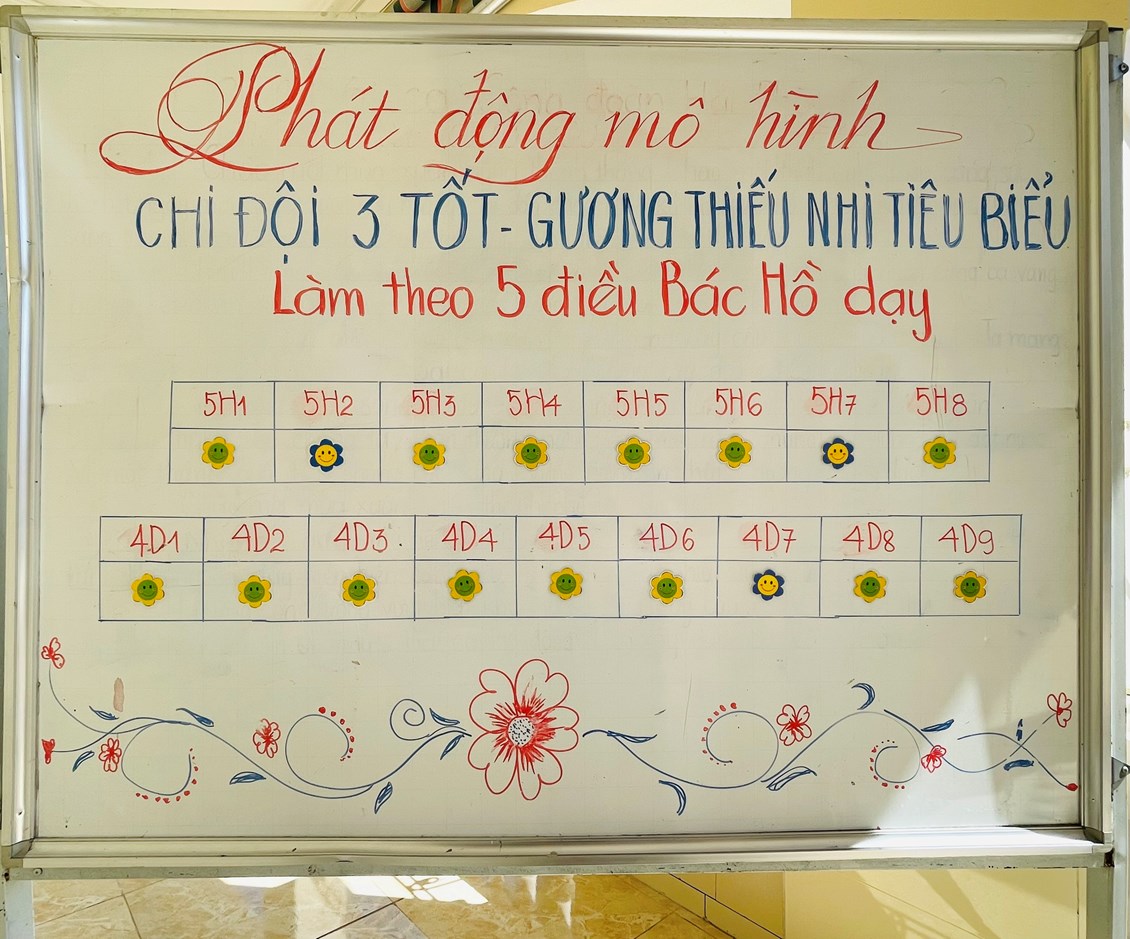 Phát động mô hình
CHI ĐỘI 3 TỐT - GƯƠNG THIẾU NHI TIÊU BIỂU
Làm theo 5 điều Bác Hồ dạy
5H1 5H2 5H3 5H4 5H5 5H6 5H7 5H8
4D1 4D2 4D3 4D4 4D5 4D6 4D7 4D8 4D9